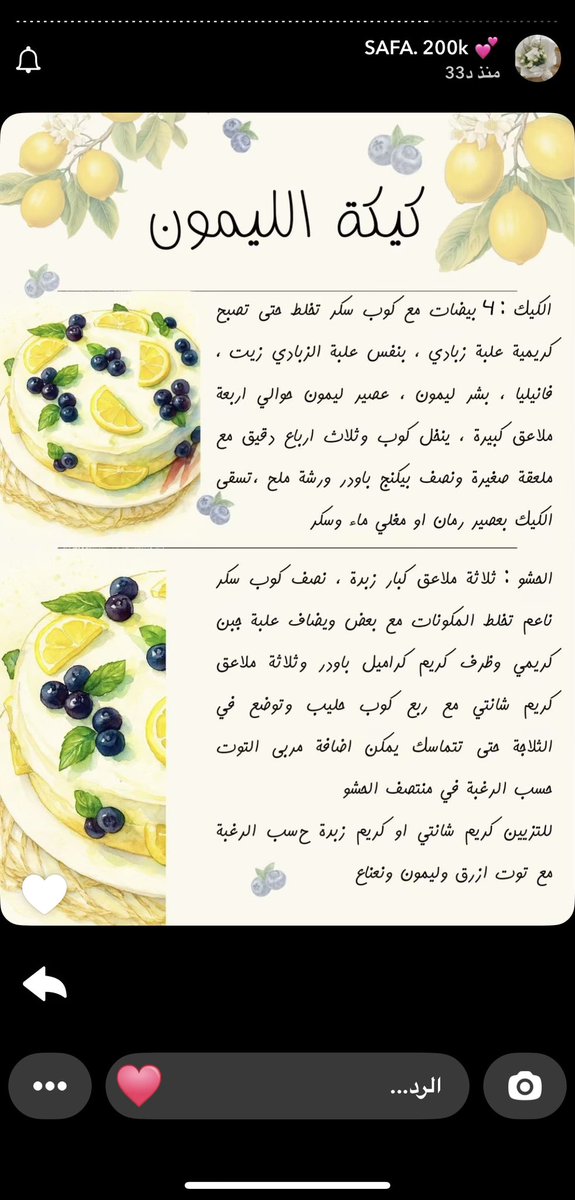 SAFA. 200k 💕
منذ 33د
كيكة الليمون
الكيك : 4 بيضات مع كوب سكر تخلط حتى تصبح
كريمية علبة زبادي ، بنفس علبة الزبادي زيت ،
فانيليا ، بشر ليمون ، عصير ليمون حوالي اربعة
ملاعق كبيرة ، ينخل كوب وثلاث ارباع دقيق مع
ملعقة صغيرة ونصف بيكنج باودر ورشة ملح ،تسقى
الكيك بعصير رمان او مغلي ماء وسكر
الحشو : ثلاثة ملاعق كبار زبدة ، نصف كوب سكر
ناعم تخلط المكونات مع بعض ويضاف علبة جبن
كريمي وظرف كريم كراميل باودر وثلاثة ملاعق
كريم شانتي مع ربع كوب حليب وتوضع في
الثلاجة حتى تتماسك يمكن اضافة مربى التوت
حسب الرغبة في منتصف الحشو
للتزيين كريم شانتي او كريم زبدة حسب الرغبة
مع توت ازرق وليمون ونعناع
الرد...